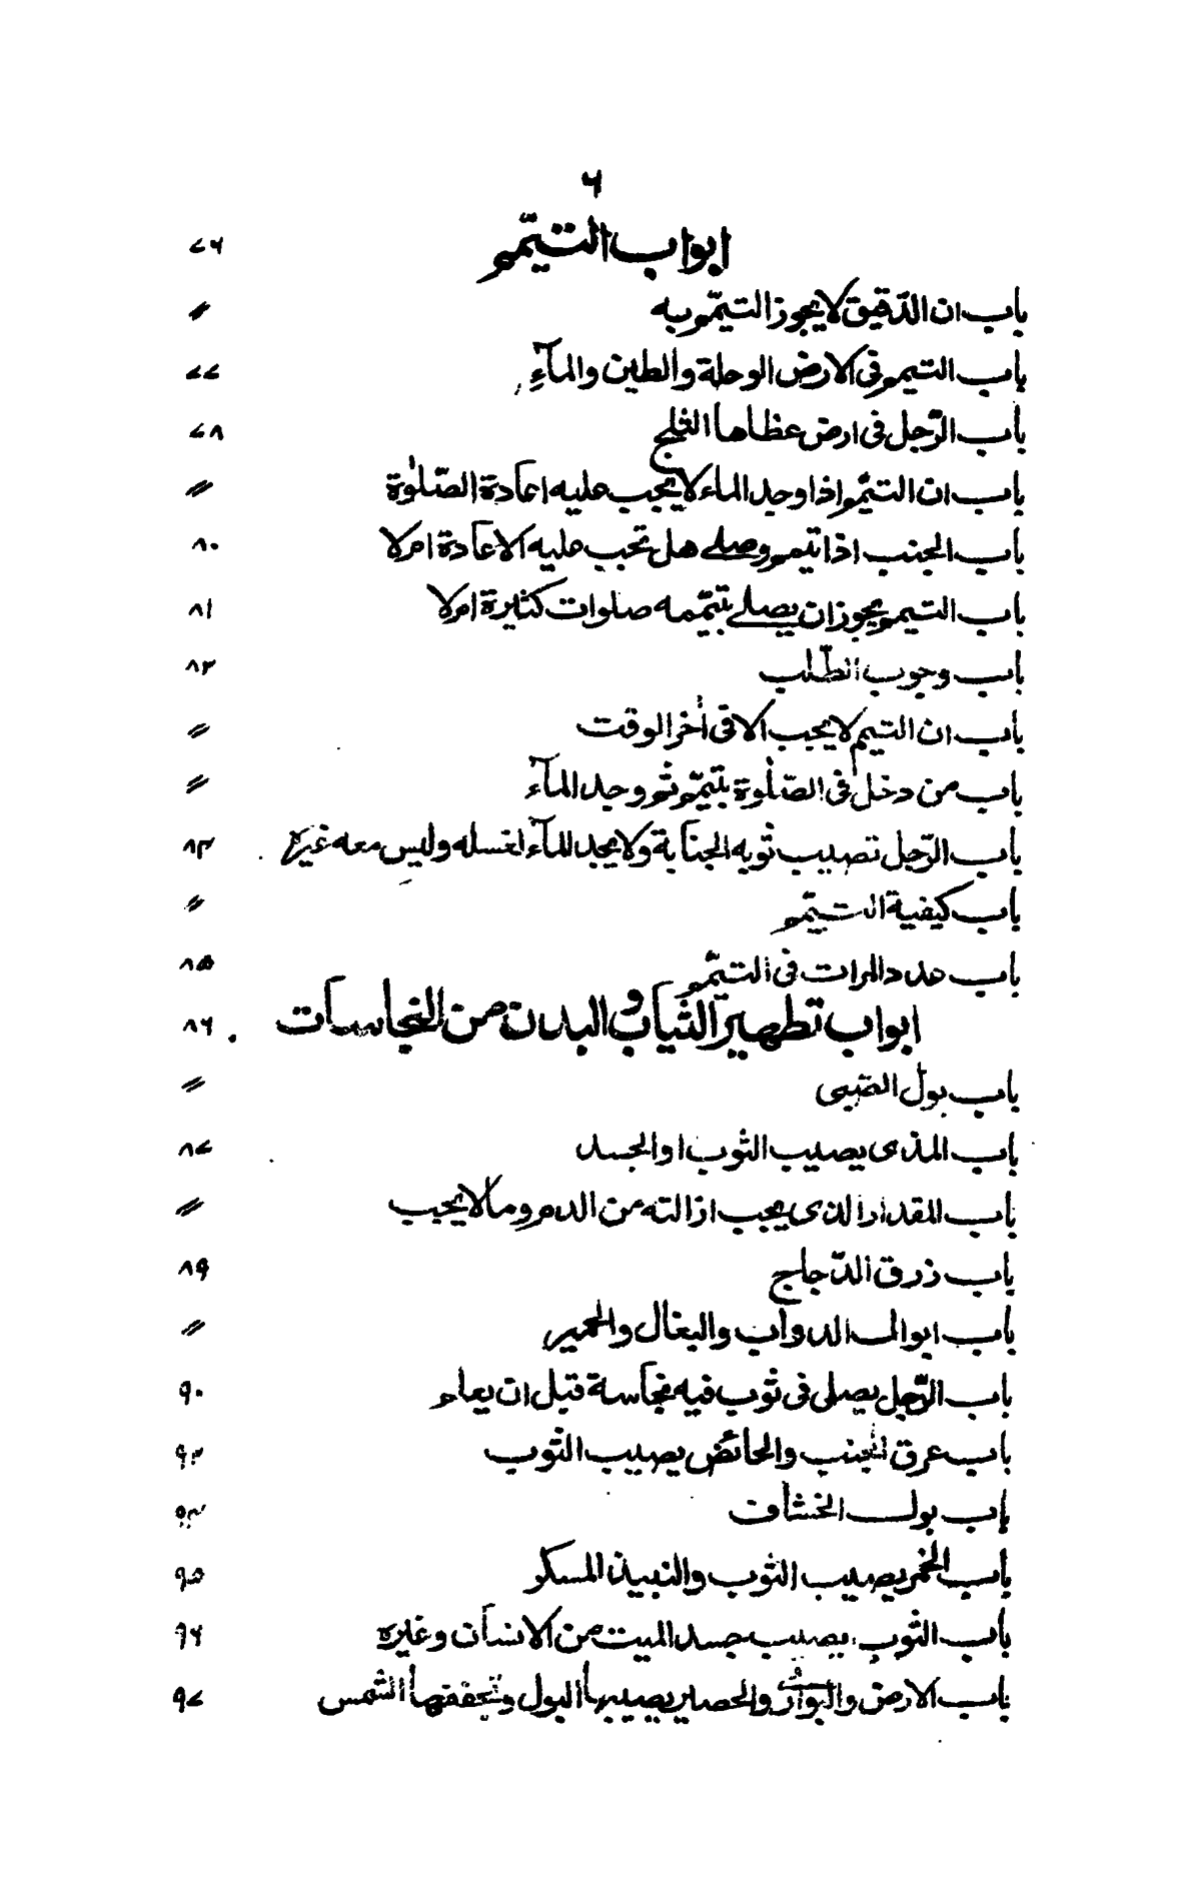 ٦
ابواب التيمّم ٧٦
باب ان الدّقيق لا يجوز التيمّم به //
باب التيمم فى الارض الوحلة والطين والمآءِ ٧٧
باب الرّجل فى ارض عظاها الثلج ٧٨
باب ان التيمّم اذا وجد الماء لا يجب عليه اعادة الصّلٰوة //
باب الجنب اذا تيمم وصلے هل تجب عليه الاعادة ام لا ٨٠
باب التيمم يجوز ان يصلے بتيمّمه صلوات كثيرة ام لا ٨١
باب وجوب الطّلب ٨٢
باب ان التيمم لا يجب الا فى أخر الوقت //
باب من دخل فى الصّلٰوة بتيمّم ثم وجد المآء //
باب الرّجل تصيب ثوبه الجنابة ولا يجد المآء لغسله وليس معه غيره ٨٣
باب كيفية التيمّم //
باب عدد المرات فى التيمّم ٨٥
ابواب تطهير الثياب والبدن من النجاسات ٨٦
باب بول الصّبى //
باب المذى يصيب الثوب او الجسد ٨٧
باب المقدار الذى يجب ازالته من الدم وما لا يجب //
باب ذرق الدّجاج ٨٩
باب ابوال الدواب والبغال والحمير //
باب الرّجل يصلى فى ثوب فيه نجاسة قبل ان يعلم ٩٠
باب عرق الجنب والحائض يصيب الثوب ٩٢
باب بول الخشاف ٩٣
باب الخمر يصيب الثوب والنبيذ المسكر ٩٥
باب الثوب يصيب جسد الميت من الانسان وغيره ٩٦
باب الارض والبوارى والحصير يصيبها البول وتجففها الشمس ٩٧